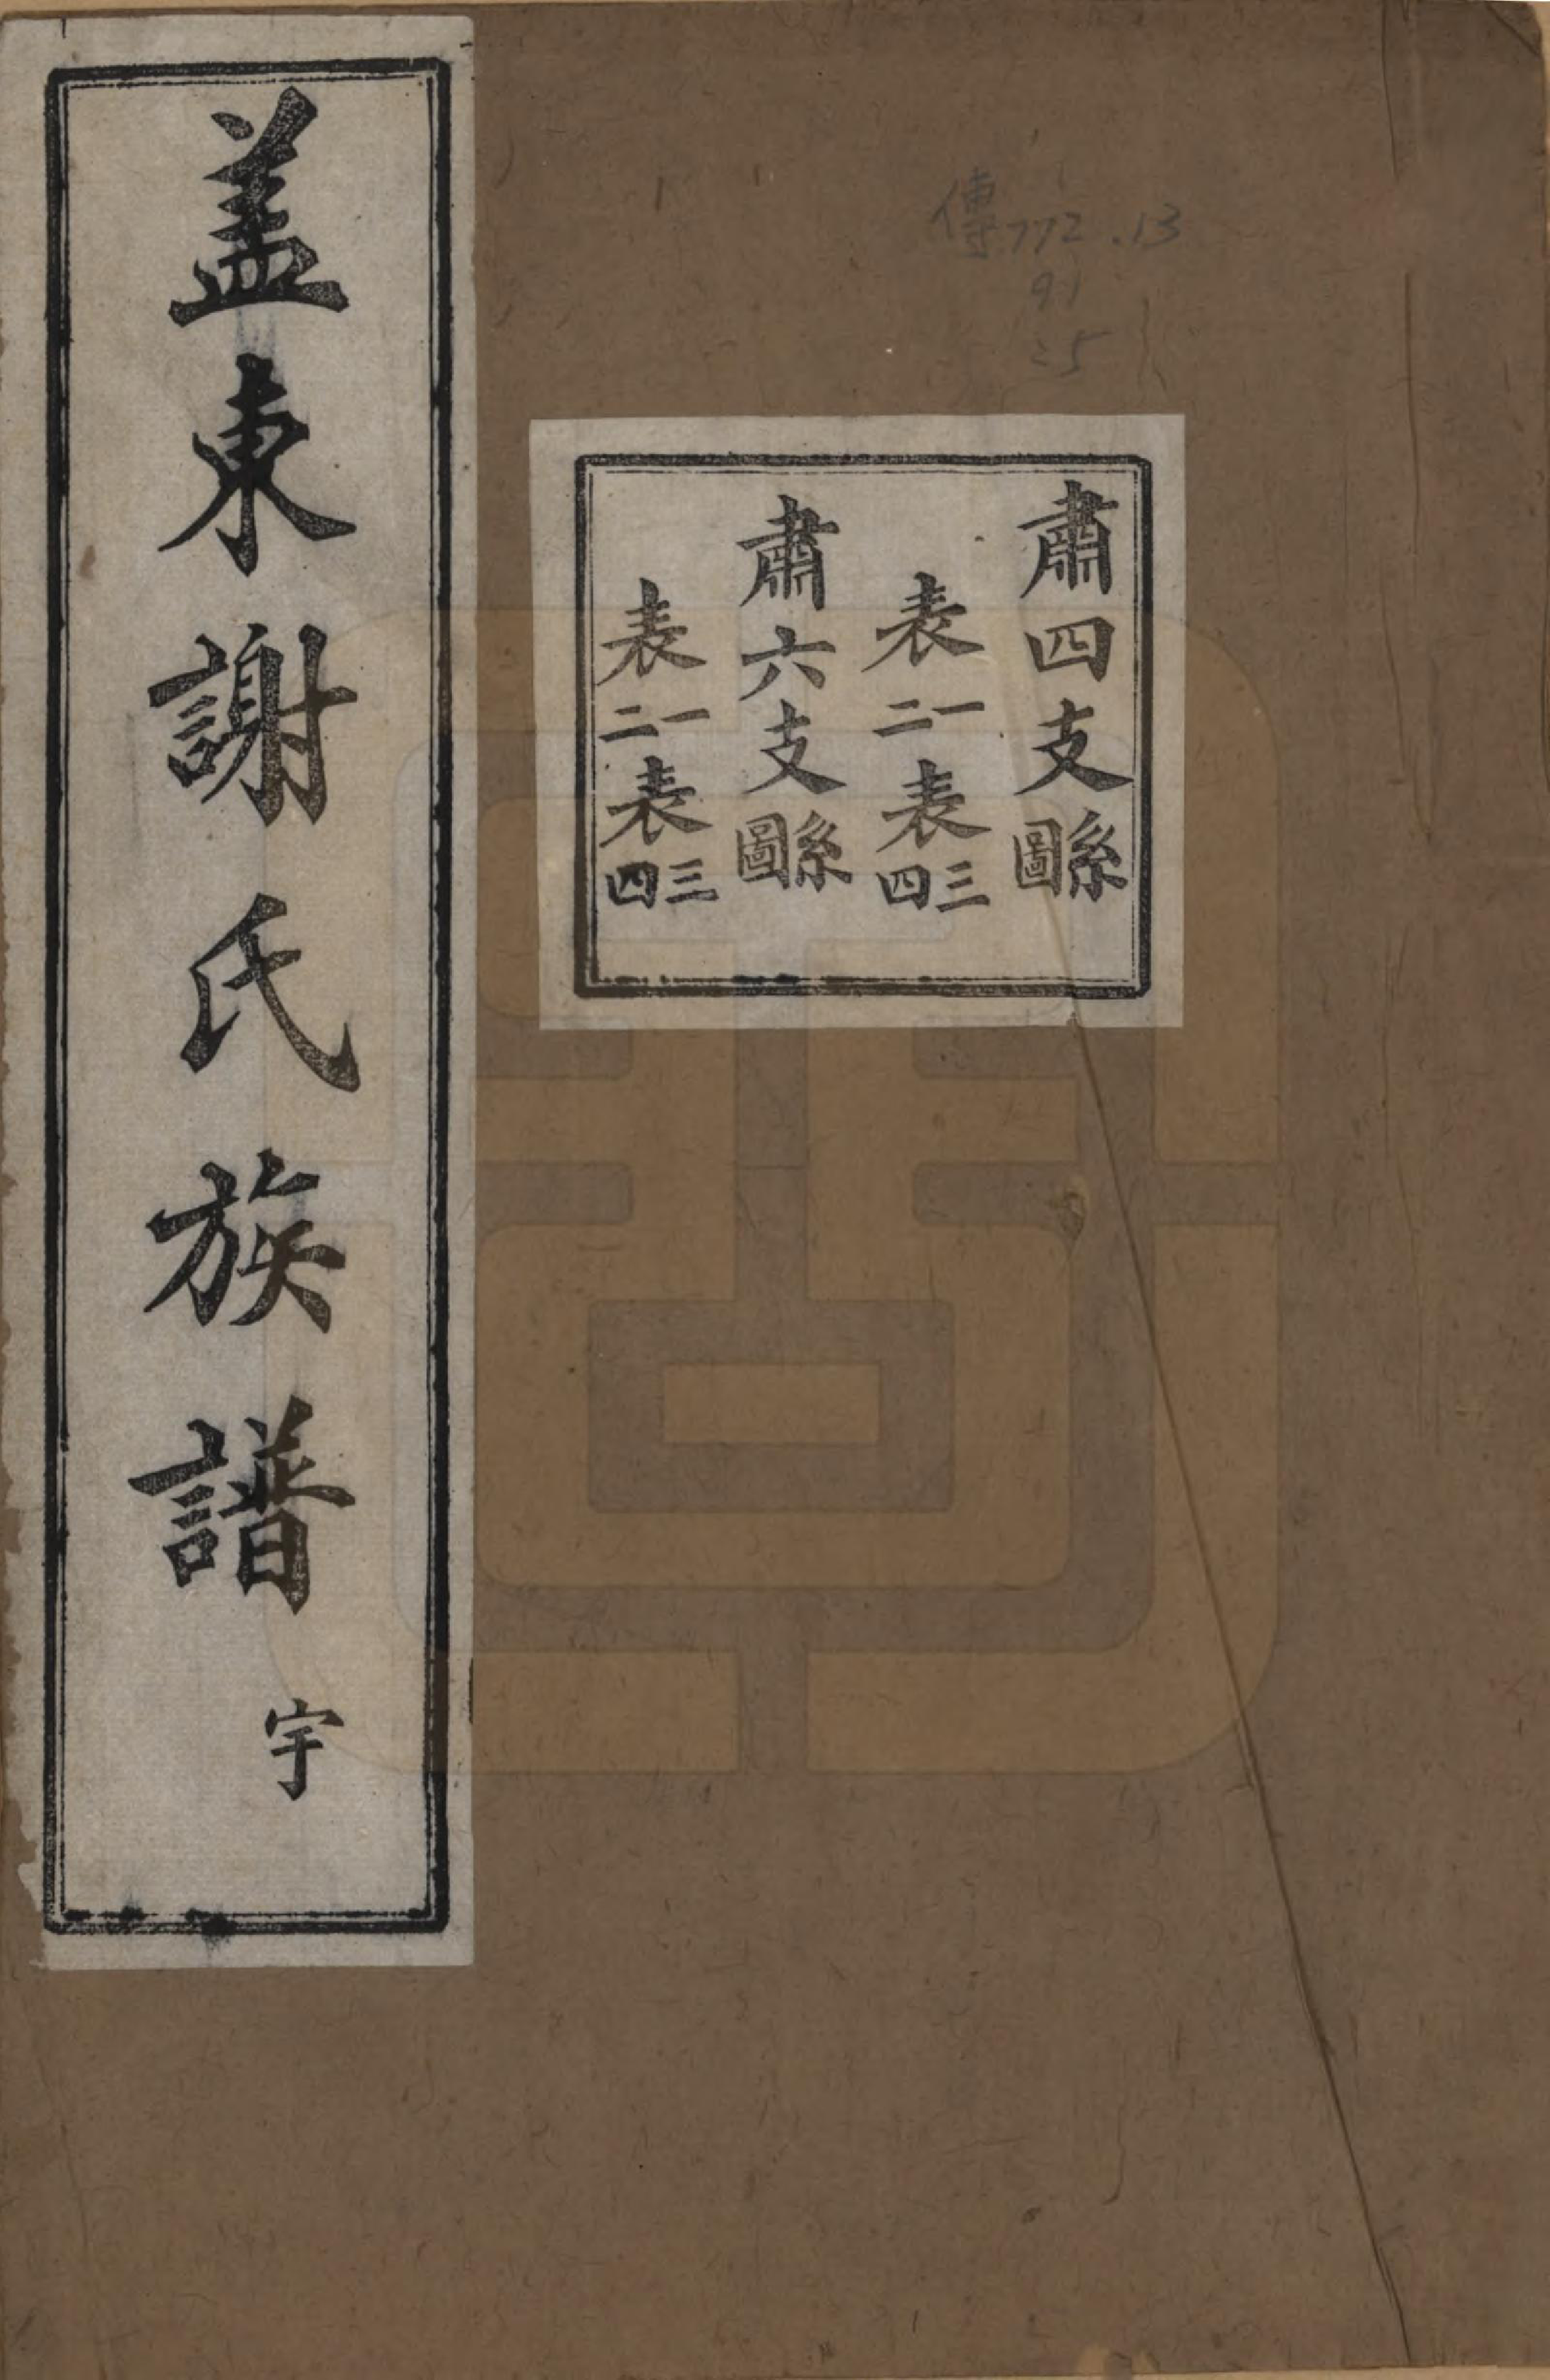 盖東謝氏族譜 宇
傳772.13
91
=5
肅四支圖系
表一二表三四
肅六支圖系
表一二表三四